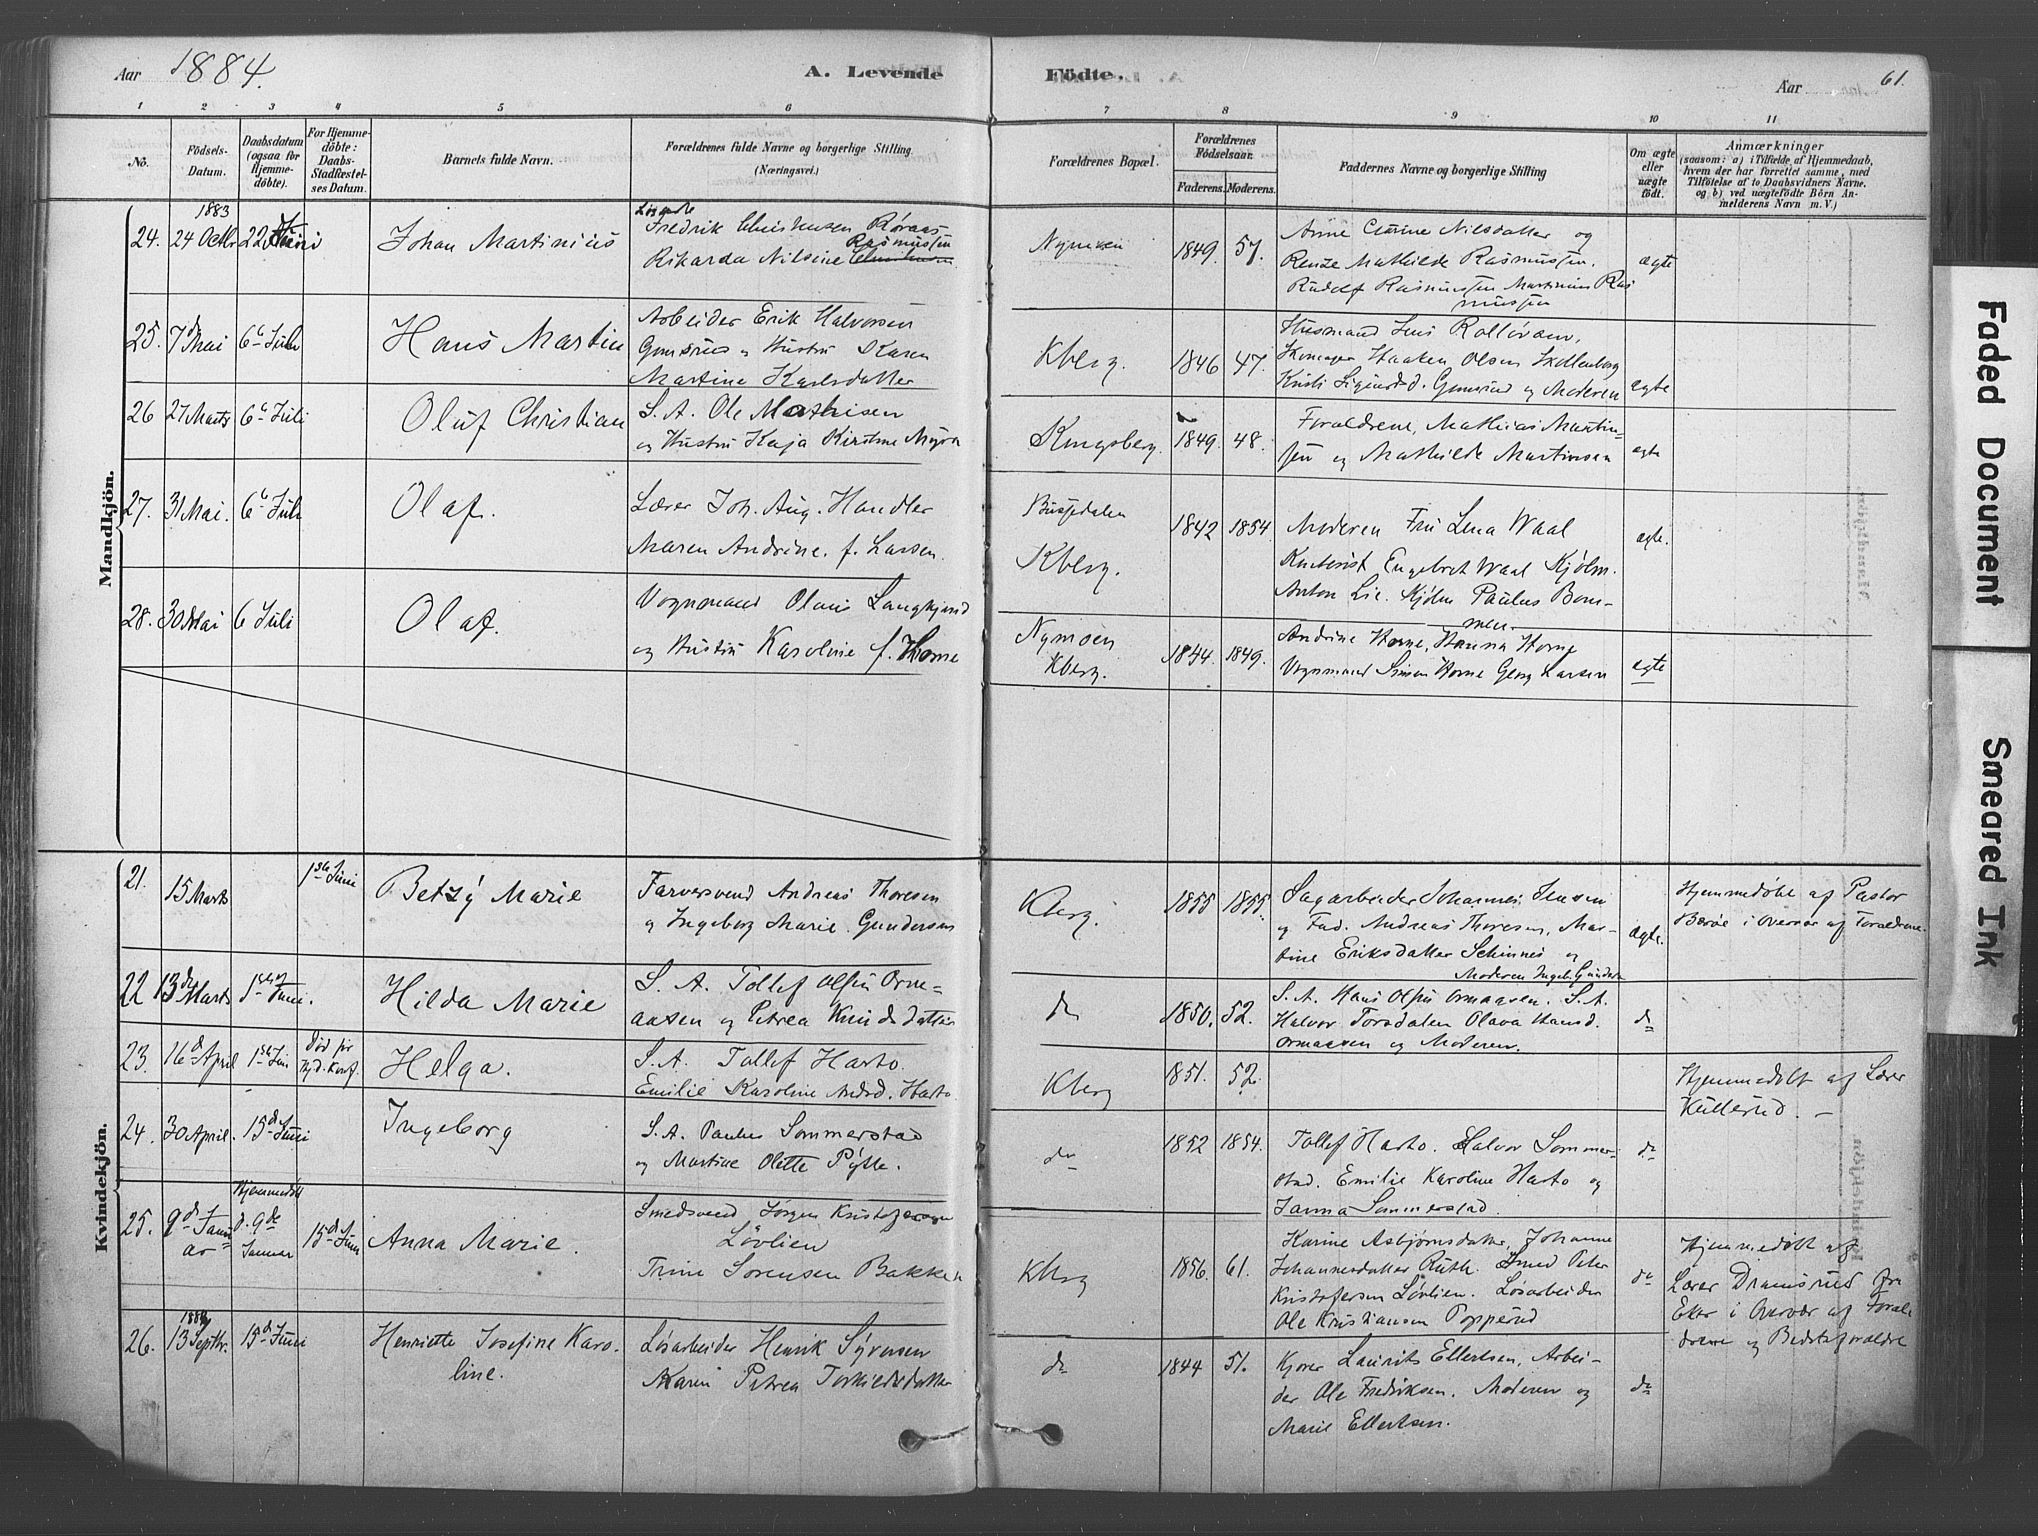 Aar 1884.
A. Levende
Födte.
Aar
61.
1 2 3 4 5 6 7 8 9 10 11
No.
Födsels-
Datum.
Daabsdatum
(ogsaa for
Hjemme-
döbte).
For Hjemme-
döbte:
Daabs-
Stadfæstel-
ses Datum.
Barnets fulde Navn.
Forældrenes fulde Navne og borgerlige Stilling.
(Næringsvei.)
Forældrenes Bopæl.
Forældrenes
Födselsaar.
Faderens. Moderens.
Faddernes Navne og borgerlige Stilling
Om ægte
eller
uægte
födt.
Anmærkninger
(saasom: a) i Tilfælde af Hjemmedaab,
hvem der har forrettet samme, med
Tilföielse af to Daabsvidners Navne,
og b) ved uægtefödte Börn An-
melderens Navn m. V.)
Mandkjön.
24.
1883
24 Octbr
22
Johan Martinius
Fredrik Christensen Røraas
Rasmussen
Rikarda Nilsine
Nymoen
1849. 57.
Anne Nilsdatter og
Mathilde Rasmussen.
Rudolf Rasmussen Martinius Ras
mussen
ægte
25. 7d Mai 6te Juli
Hans Martin
Arbeider Erik Halvorsen
og Hustru Karen
Martine Karlsdatter
Kberg.
1846 47.
Husmand
Haaken Olsen
og Moderen
ægte
26 27 Marts 6te Juli
Oluf Christian
S. A. Ole Mathisen
og Hustru Kaja Kirstine Myra
Kongsberg.
1849. 48.
Forældrene, Mathias Martin-
sen og Mathilde Martinsen
ægte
27. 31 Mai. 6te Juli
Olaf.
Lærer Joh. Aug. Handler
Maren Andrine. f. Larsen.
Kberg.
1842 1854.
Moderen Fru Lena Waal
Engebret Waal Kjøbm.
Anton Lie. Kjøbm Paulus Bom-
men.
ægte.
28. 30 Mai 6 Juli
Olaf.
Vognmand Olaus
og Hustru Karoline f. Horne
Nymoen
Kberg.
1844. 1849.
Andrine Horne, Hanna Horne
Vognmand Simon Horne Georg Larsen
ægte
Kvindekjön.
21. 15 Marts 1ste Juni
Betzÿ Marie
Farversvend Andreas Thoresen
og Ingeborg Marie Gundersen
Kberg.
1855 1855.
Sagarbeider Johannes Jensen
og Fad. Andreas Thoresen, Mar-
tine Eriksdatter Schinnes og
Moderen Ingeb. Gunders
ægte.
Hjemmedøbt af Pastor
i Overvær af Forældrene.
22 13de Marts 1ste Juni.
Hilda Marie
S. A. Tollef Olsen Orme-
aasen og Petrea Knudsdatter
do
1850. 52.
S. A. Hans Olsen Ormaasen. S. A.
Halvor Torsdalen Olava Hansd.
Ormaasen og Moderen.
do
23. 16d April 1ste Juni
Død før
Helga.
S. A. Tollef Hasto.
Emilie Karoline Andsd. Hasto
Kberg
1851. 52.
Hjemmedøbt af Lærer
Kullerud. —
24. 30 April. 15d Juni
Ingeborg
S. A. Paulus Sommerstad
og Martine Olette Pÿtte.
do
1852 1854.
Tollef Hasto. Halvor Sommer-
stad. Emilie Karoline Hasto og
Janna Sommerstad.
do
25. 9d Janu
ar
Hjemmedøbt
d. 9de
Januar
15d Juni
Anna Marie.
Smedsvend Jørgen Kristofersen
Løvlien
Trine Sorensen Bakken
Kberg
1856. 61.
Karine Asbjørnsdatter, Johanne
Johannesdatter Ruth. Smed Peter
Kristofersen Løvlien. Løsarbeider
Ole Kristiansen Popperud
do
Hjemmedøbt af
Lærer Dramsrud fra
Eker i Overvær af Foræl
drene og Bedsteforældre
26. 13 Septbr. 15d Juni
Henriette Josefine Karo-
line.
Løsarbeider Henrik Sÿversen
Karen Petrea Torkildsdatter
do
1844 51.
Kjører Laurits Ellertsen, Arbei-
der Ole Fredriksen. Moderen og
Marie Ellertsen.
do
Faded Document
Smeared Ink